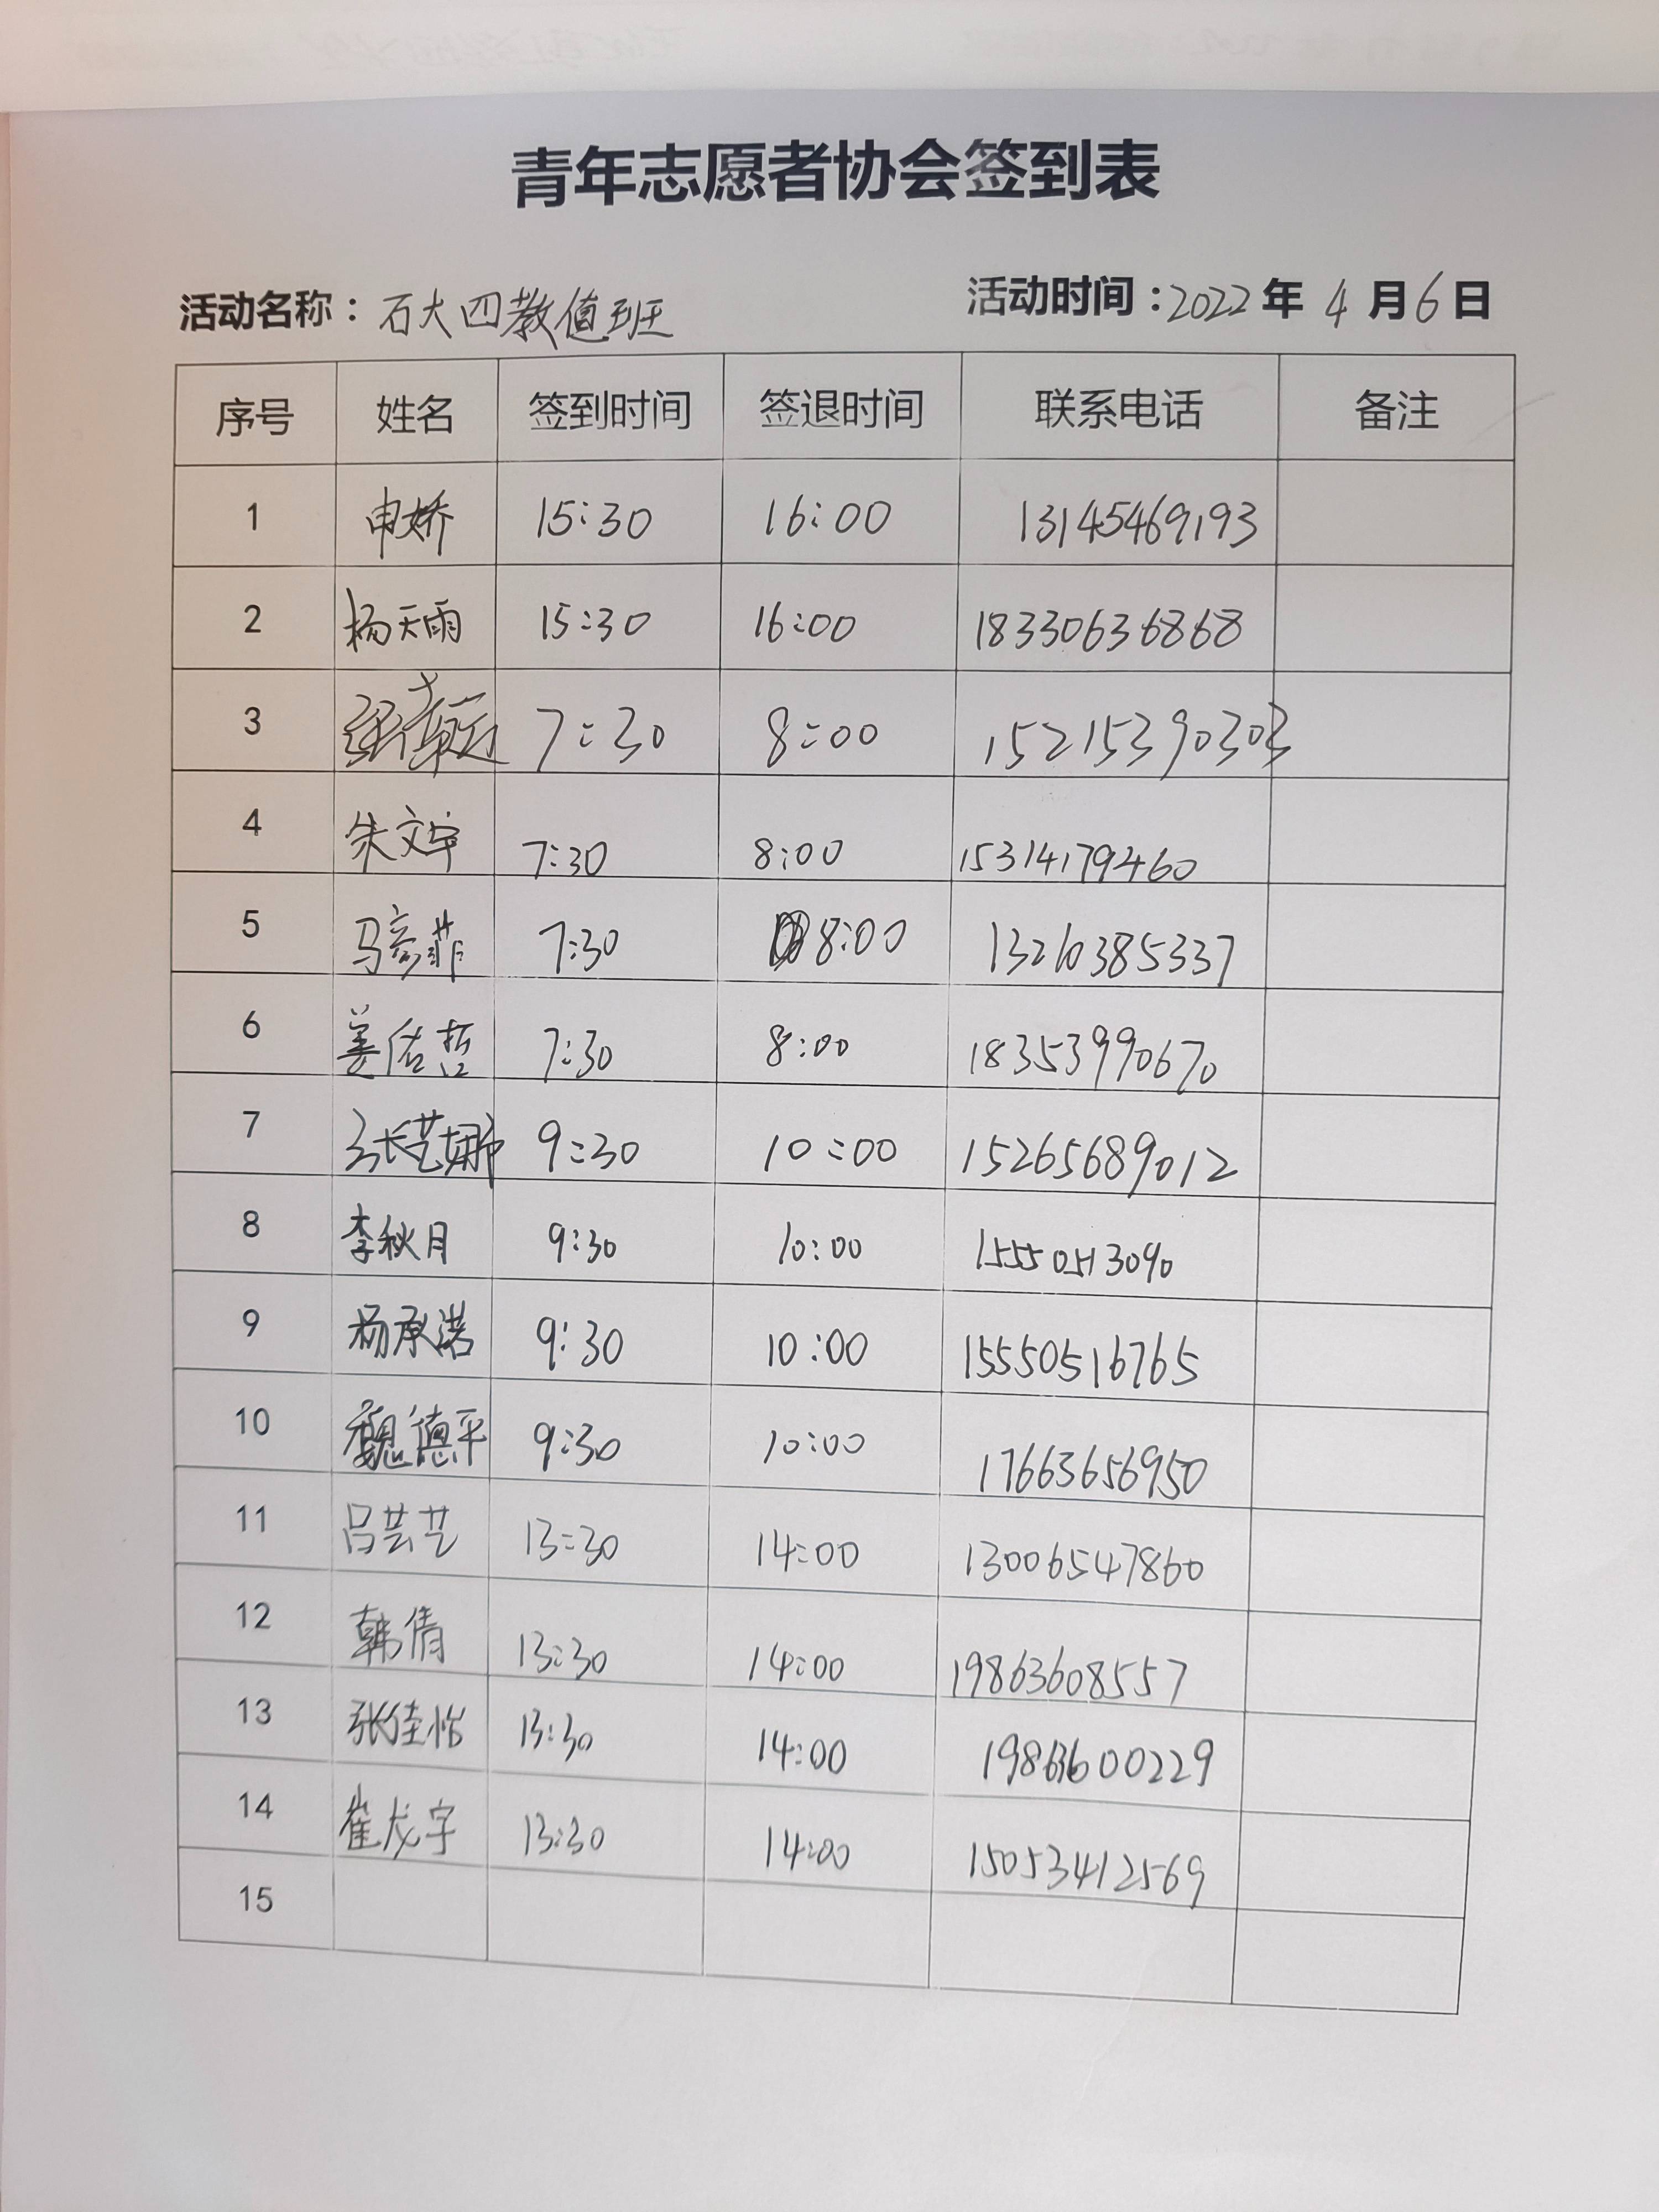 青年志愿者协会签到表
活动名称：石大四教值班 活动时间：2022年4月6日
序号 姓名 签到时间 签退时间 联系电话 备注
1 申娇 15:30 16:00 13145469193
2 杨天雨 15:30 16:00 18330636868
3 7:30 8:00 15215390303
4 朱文宇 7:30 8:00 15314179460
5 马彦菲 7:30 8:00 13210385337
6 姜佑哲 7:30 8:00 18353990670
7 张艺娜 9:30 10:00 15265689012
8 李秋月 9:30 10:00
9 杨承诺 9:30 10:00 15550516765
10 魏德平 9:30 10:00 17663656950
11 吕芸艺 13:30 14:00 13006547860
12 韩倩 13:30 14:00 19863608557
13 张佳怡 13:30 14:00 19863600229
14 崔龙宇 13:30 14:00 15053412569
15